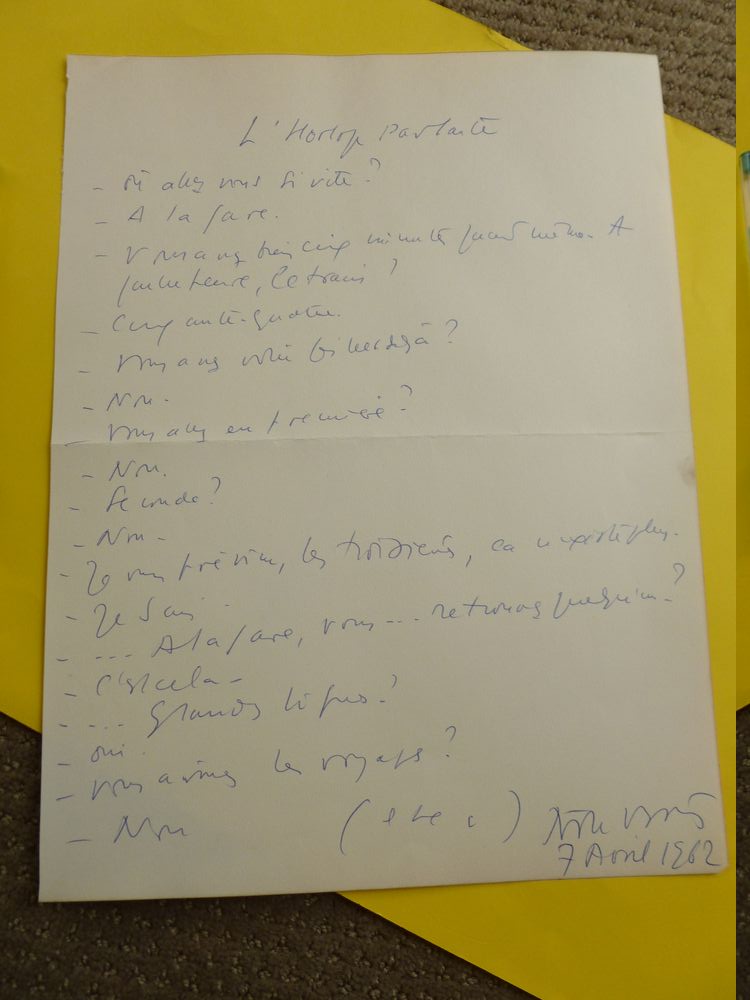 L'Horloge Parlante
- Où allez vous si vite ?
- A la gare.
- Vous avez bien cinq minutes quand même. A
quelle heure, le train ?
- Cinquante-quatre.
- Vous avez votre billet déjà ?
- Non.
- Vous allez en première ?
- Non.
- Seconde ?
- Non -
- Je vous préviens, les troisièmes, ça n'existe plus.
- Je sais.
- ... A la gare, vous ... retrouvez quelqu'un ?
- C'est cela -
- ... Grandes lignes ?
- oui.
- Vous aimez les voyages ?
- Non ( etc )
7 Avril 1962